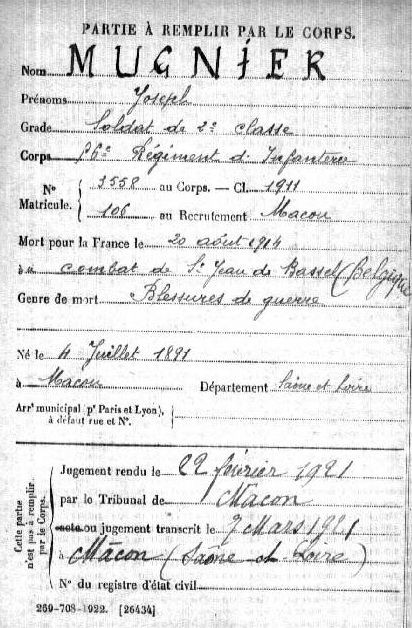 PARTIE À REMPLIR PAR LE CORPS.
Nom MUGNIER
Prénoms Joseph
Grade Soldat de 2e classe
Corps Régiment d'Infanterie
N° Matricule. { 1558 au Corps. — Cl. 1911
106 au Recrutement Macon
Mort pour la France le 20 août 1914
à combat de St Jean de Bassel (Belgique
Genre de mort Blessures de guerre
Né le 4 Juillet 1891
à Macon Département Saône et Loire
Arrt municipal (pr Paris et Lyon), à défaut rue et N°. }
Cette partie n'est pas à remplir par le Corps.
Jugement rendu le 22 février 1921
par le Tribunal de Macon
acte ou jugement transcrit le 7 Mars 1921
à Mâcon (Saône et Loire)
N° du registre d'état civil
269-708-1922. [26434]